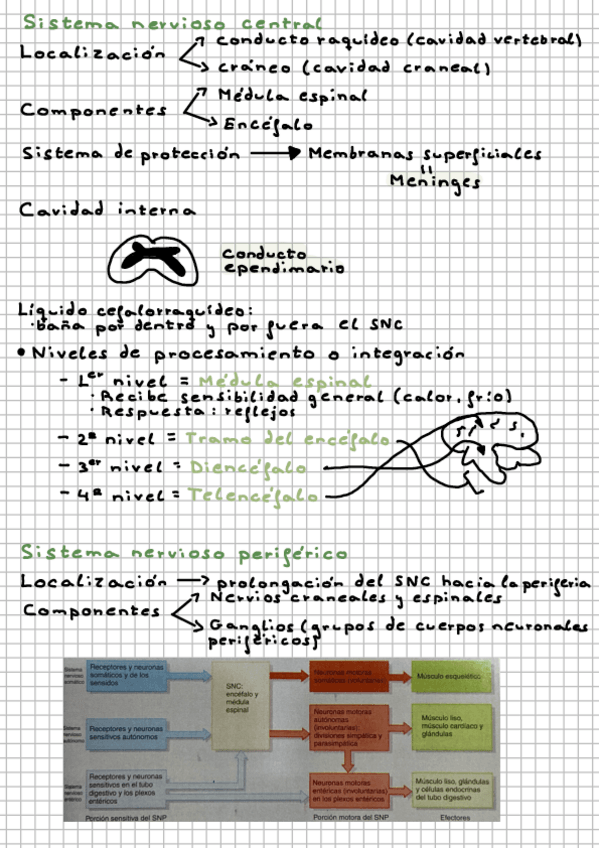 Sistema nervioso central
Localización
conducto raquídeo (cavidad vertebral)
cráneo (cavidad craneal)
Componentes
Médula espinal
Encéfalo
Sistema de protección → Membranas superficiales
Meninges
Cavidad interna
Conducto
ependimario
Líquido cefalorraquídeo:
· baña por dentro y por fuera el SNC
• Niveles de procesamiento o integración
- 1er nivel = Médula espinal
· Recibe sensibilidad general (calor, frío)
· Respuesta: reflejos
- 2º nivel = Tramo del encéfalo
- 3er nivel = Diencéfalo
- 4º nivel = Telencéfalo
Sistema nervioso periférico
Localización → prolongación del SNC hacia la periferia
Componentes
Nervios craneales y espinales
Ganglios (grupos de cuerpos neuronales
periféricos)
Sistema
nervioso
somático
Receptores y neuronas
somáticos y de los
sensidos
SNC:
encéfalo y
médula
espinal
Neuronas motoras
somáticas (voluntarias)
Músculo esquelético
Sistema
nervioso
autónomo
Receptores y neuronas
sensitivos autónomos
Neuronas motoras
autónomas
(involuntarias):
divisiones simpática y
parasimpática
Músculo liso,
músculo cardíaco y
glándulas
Sistema
nervioso
entérico
Receptores y neuronas
sensitivos en el tubo
digestivo y los plexos
entéricos
Neuronas motoras
entéricas (involuntarias)
en los plexos entéricos
Músculo liso, glándulas
y células endocrinas
del tubo digestivo
Porción sensitiva del SNP
Porción motora del SNP
Efectores